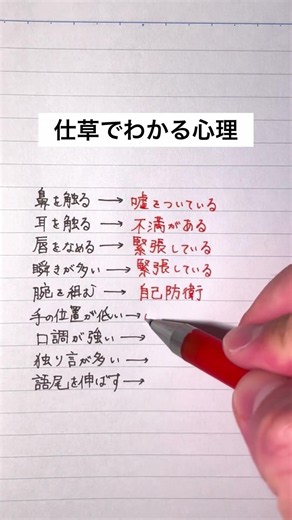 仕草でわかる心理
鼻を触る → 嘘をついている
耳を触る → 不満がある
唇をなめる → 緊張している
瞬きが多い → 緊張している
腕を組む → 自己防衛
手の位置が低い →
口調が強い →
独り言が多い →
語尾を伸ばす →